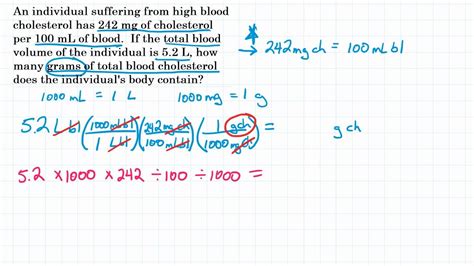 An individual suffering from high blood
cholesterol has 242 mg of cholesterol
per 100 mL of blood. If the total blood
volume of the individual is 5.2 L, how
many grams of total blood cholesterol
does the individual's body contain?
* → 242mg ch = 100mL bl
1000 mL = 1 L 1000 mg = 1 g
5.2 L bl (1000mL bl / 1 L bl) (242mg ch / 100mL bl) (1 g ch / 1000mg ch) = g ch
5.2 × 1000 × 242 ÷ 100 ÷ 1000 =